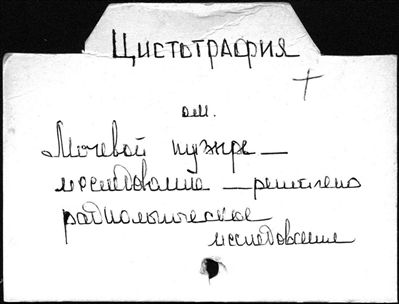 Цистография
см.
Мочевой пузырь —
исследование — рентгено
радиологическое
исследование